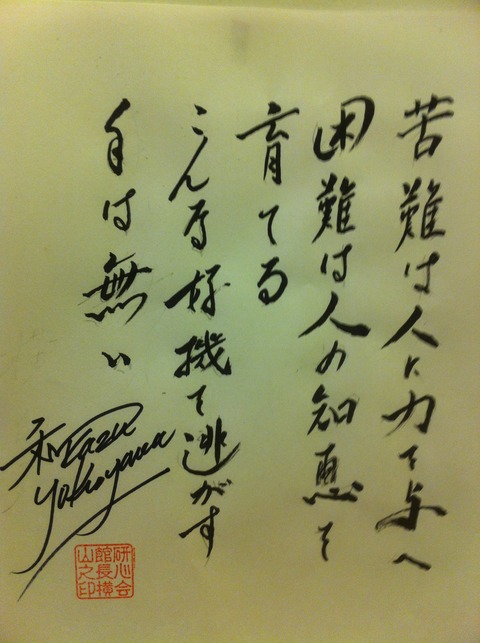 苦難は人に力を与へ
困難は人の知恵を
育てる
こんな好機を逃がす
手は無い
和 Kazu
Yokoyama
研心会
館長横
山之印